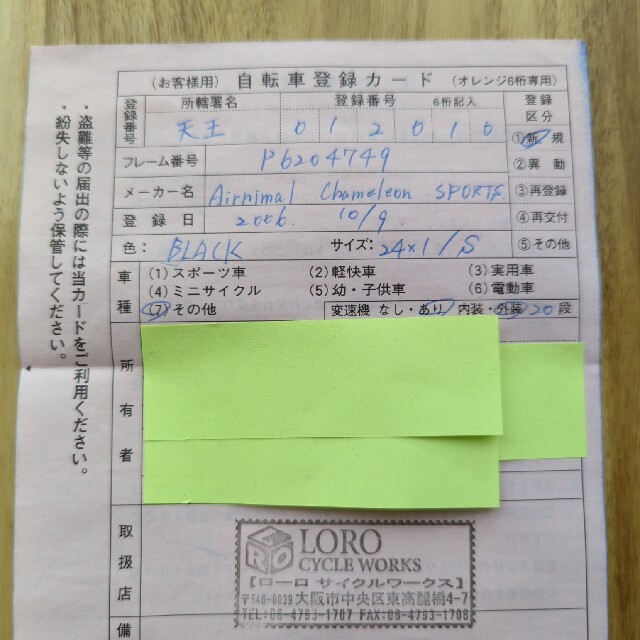 (お客様用) 自転車登録カード (オレンジ6桁専用)
登録番号 所轄署名 登録番号 6桁記入 登録区分
天王 0 1 2 0 1 0 ①新規
フレーム番号 P6204749 ②異動
メーカー名 Airnimal Chameleon SPORTS ③再登録
登録日 2006. 10/9. ④再交付
色: BLACK サイズ: 24×1/S ⑤その他
車種 (1)スポーツ車 (2)軽快車 (3)実用車
(4)ミニサイクル (5)幼・子供車 (6)電動車
(7)その他 変速機 なし・あり 内装・外装 20段
所有者
取扱店
LORO
CYCLE WORKS
【ローロ サイクルワークス】
〒540-0039 大阪市中央区東高麗橋4-7
TEL:06-4793-1707 FAX:06-4793-1708
備
・盗難等の届出の際には当カードをご利用ください。
・紛失しないよう保管してください。